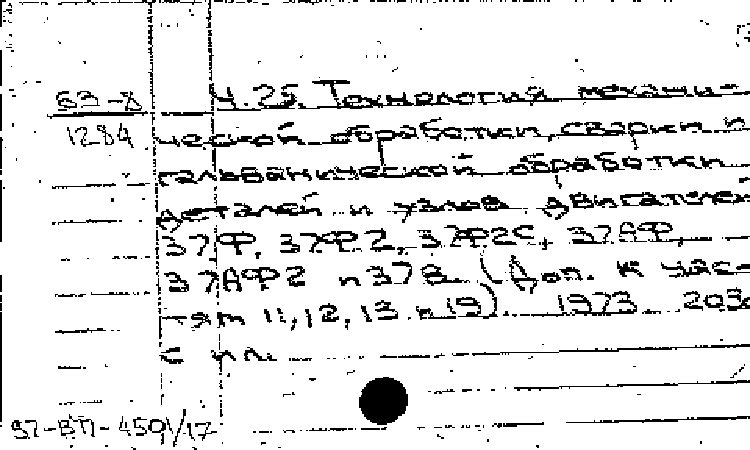 63-8 Ч.25. Технология механи-
1284 ческой обработки, сварки и
гальванической обработки
деталей и узлов двигателей
37Ф, 37Ф2, 37Ф2С, 37АФ,
37АФ2 и 37В (Доп. к час-
тям 11, 12, 13 и 19). 1973. 203
с ил.